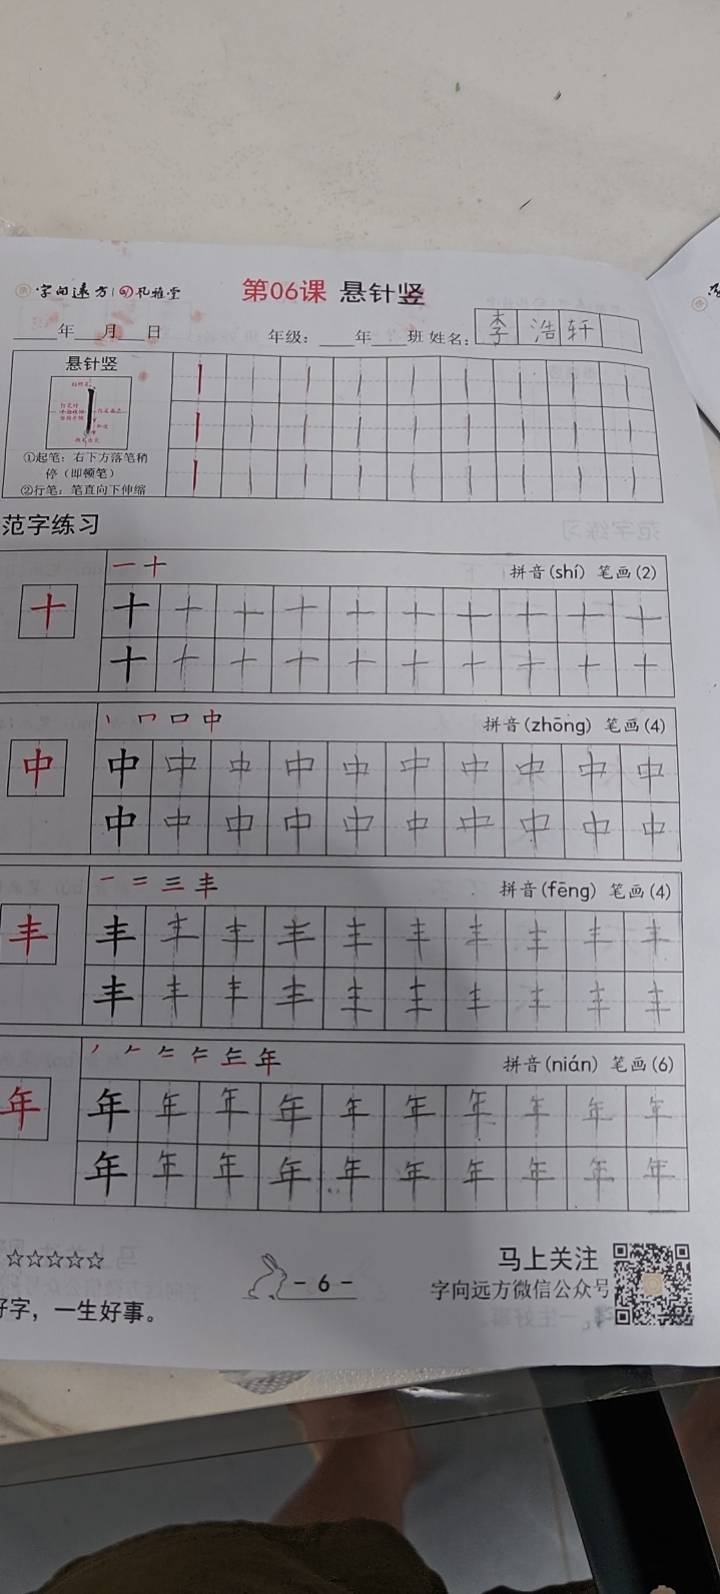 字向远方 | 孔雅堂 第06课 悬针竖
年 月 日 年级: 年 班 姓名: 李浩轩
悬针竖
①起笔:右下方落笔稍
停(即顿笔)
②行笔:笔直向下伸缩
范字练习
一 十 拼音(shí) 笔画(2)
十 十 十 十 十 十 十 十 十 十 十
十 十 十 十 十 十 十 十 十 十
丨 冂 口 中 拼音(zhōng) 笔画(4)
中 中 中 中 中 中 中 中 中 中 中
中 中 中 中 中 中 中 中 中 中
一 二 三 丰 拼音(fēng) 笔画(4)
丰 丰 丰 丰 丰 丰 丰 丰 丰 丰 丰
丰 丰 丰 丰 丰 丰 丰 丰 丰 丰
年 拼音(nián) 笔画(6)
年 年 年 年 年 年 年 年 年 年 年
年 年 年 年 年 年 年 年 年 年
☆☆☆☆☆ - 6 - 马上关注
字向远方微信公众号
好字，一生好事。